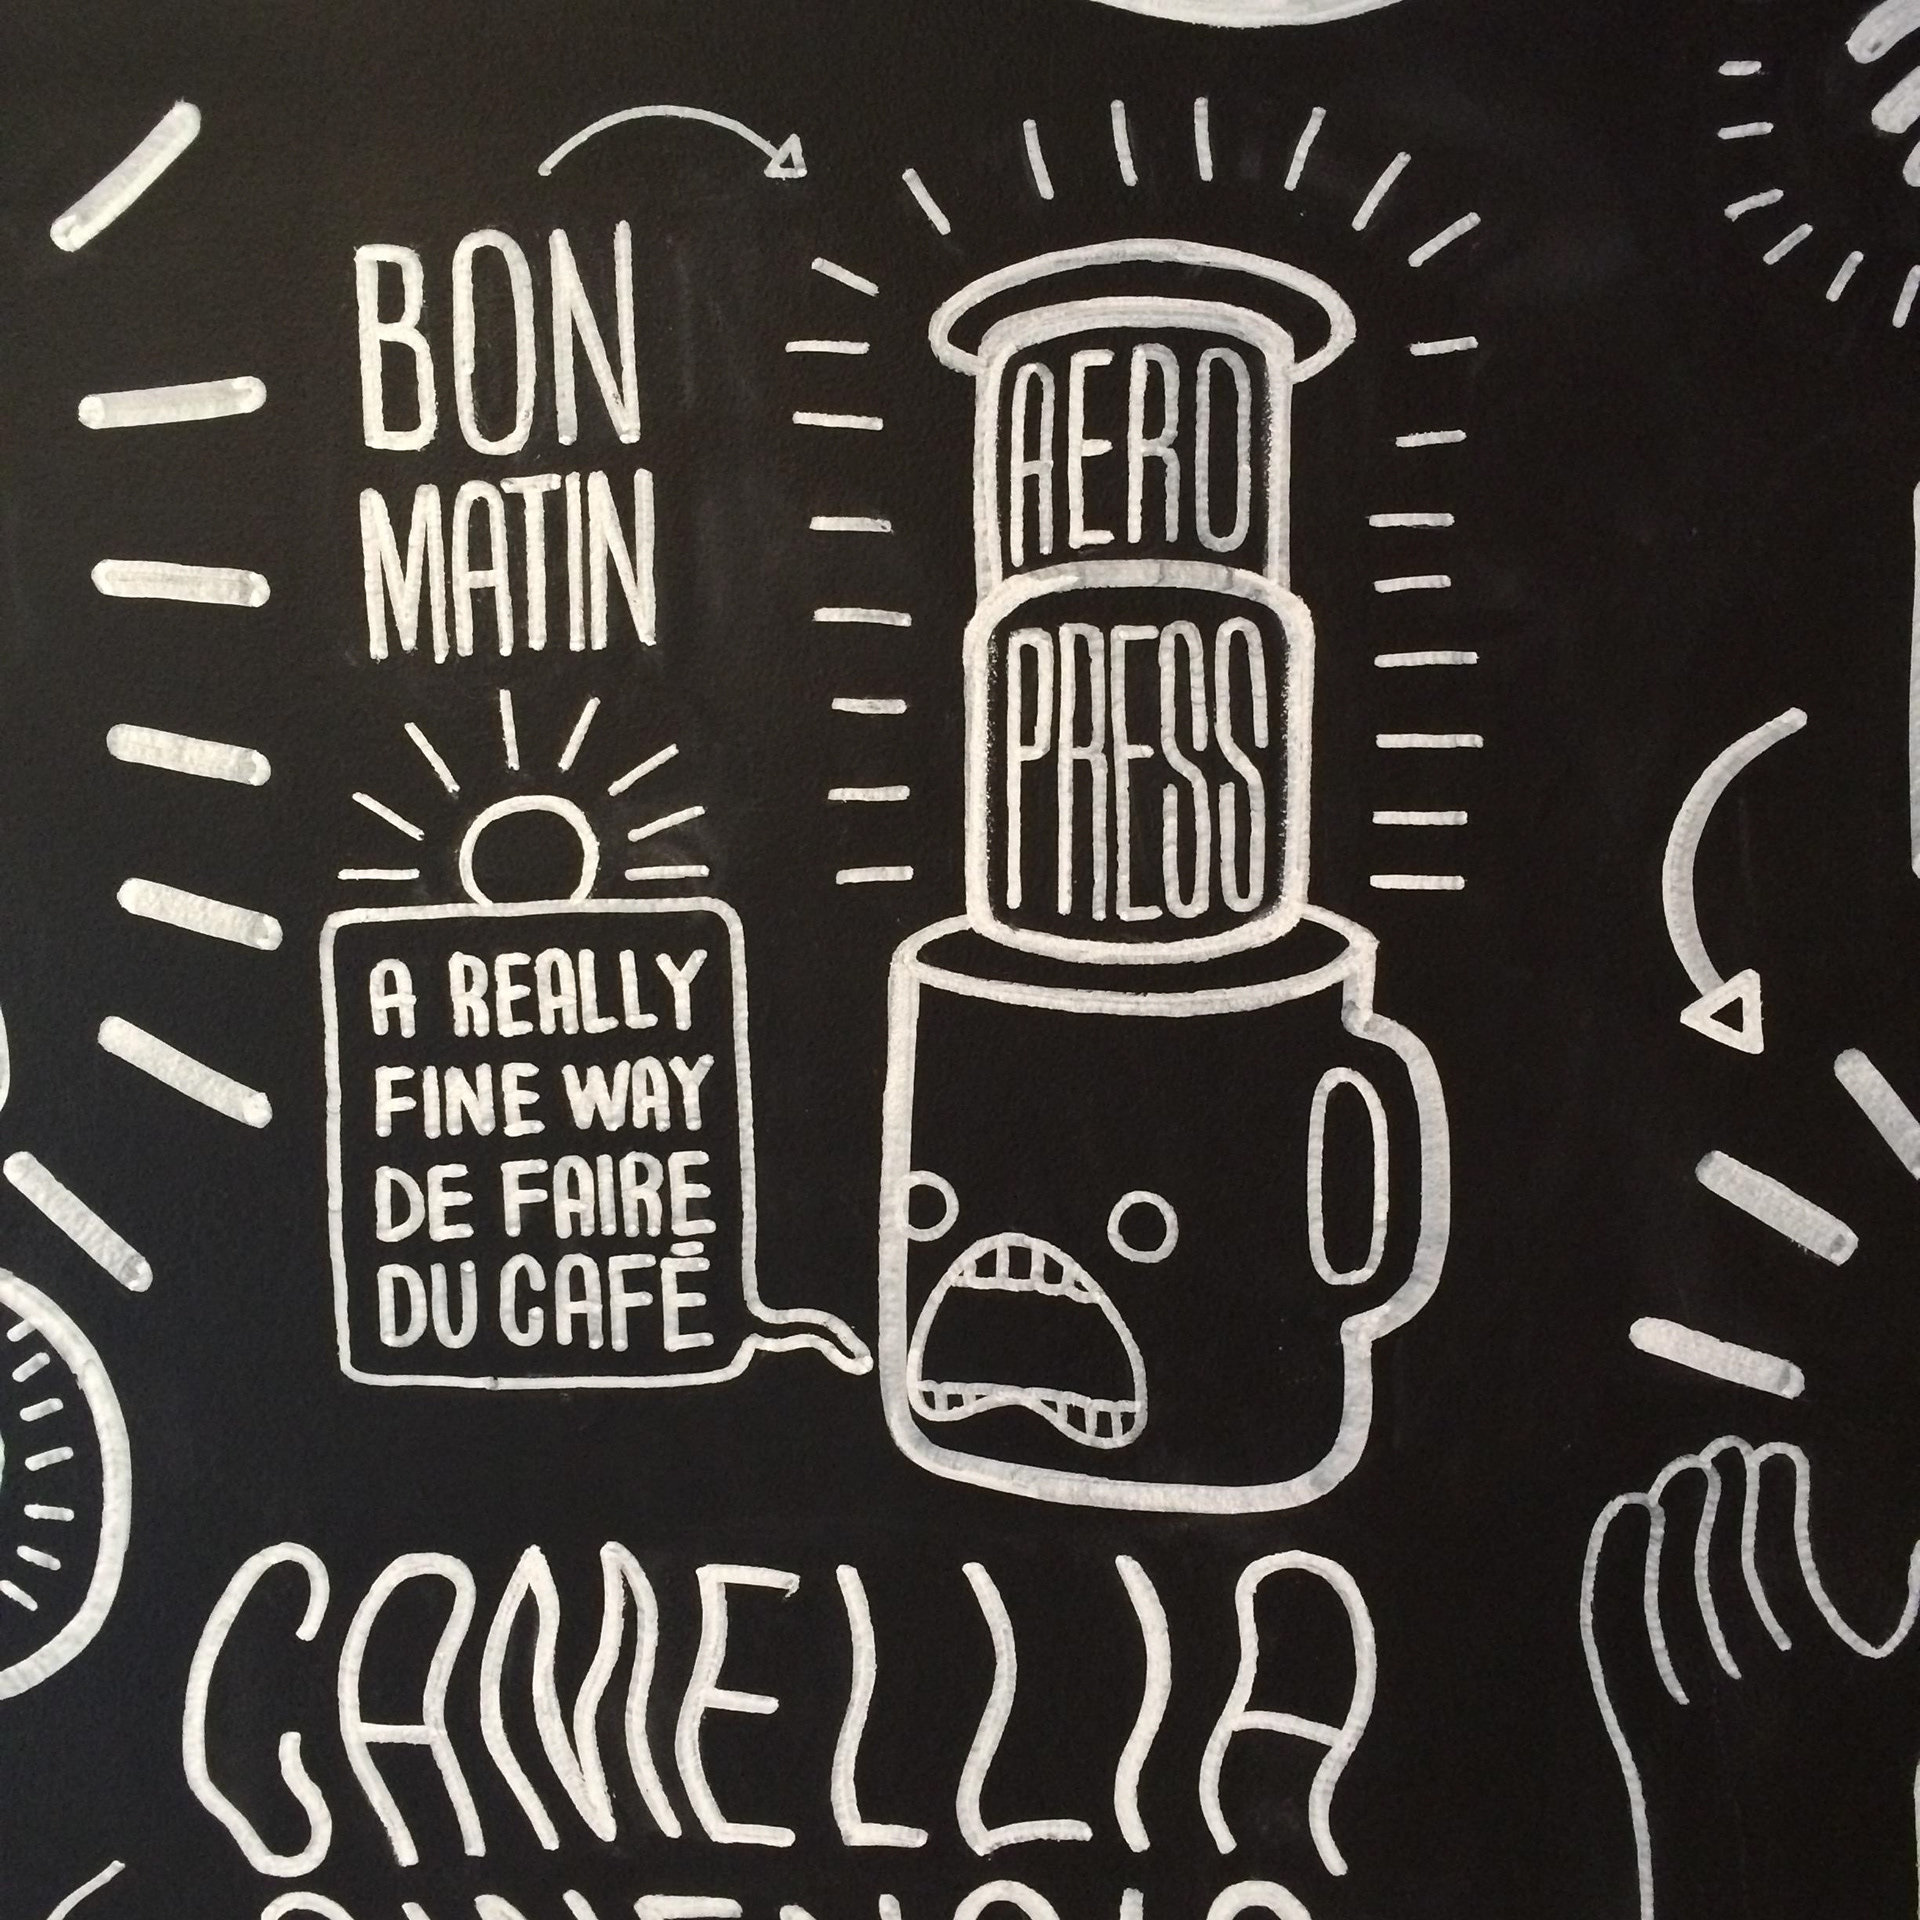 BON
MATIN
AERO
PRESS
A REALLY
FINE WAY
DE FAIRE
DU CAFÉ
CAMELLIA